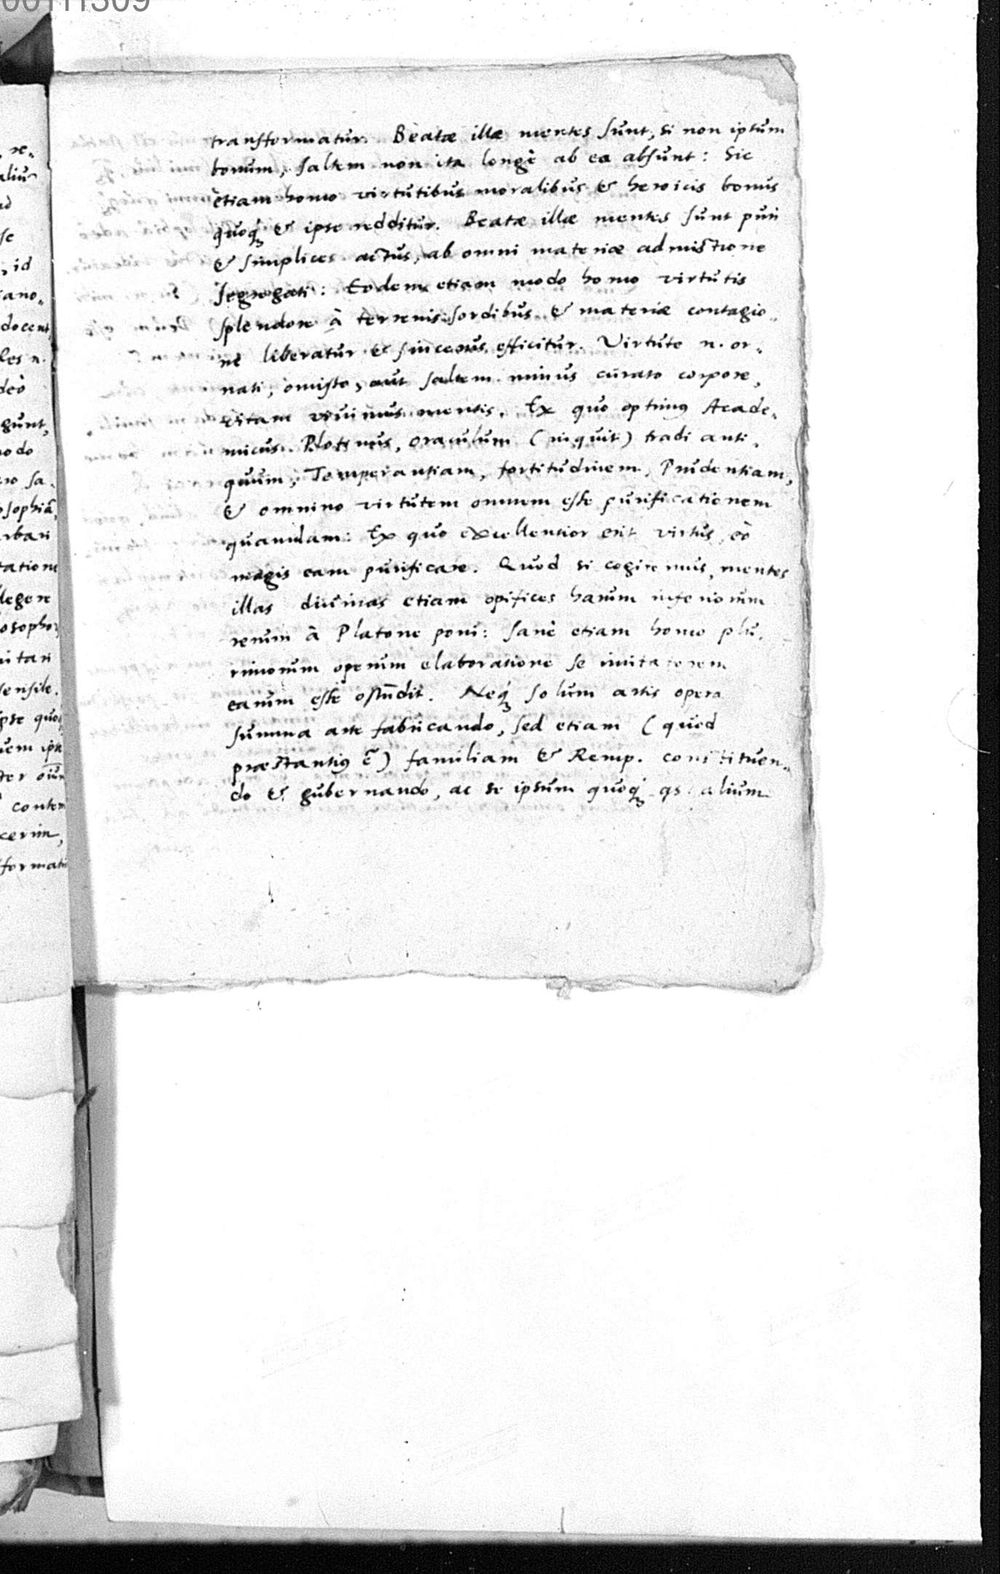 transformatur. Beatæ illæ mentes sunt, si non ipsum
bonum, saltem non ita longè ab ea absunt: Sic
etiam homo virtutibus moralibus & heroicis bonus
quoq; & ipse redditur. Beatæ illæ mentes sunt puri
& simplices actus, ab omni materiæ admistione
segregati: Eodem etiam modo homo virtutis
splendore à terrenis sordibus & materiæ contagio„
ne liberatur & sincerus efficitur. Virtute n. or„
nati, omisso, aut saltem minus curato corpore,
vitam vivimus mentis. Ex quo optimus Acade„
micus Plotinus, oraculum (inquit) tradi anti„
quum, Temperantiam, fortitudinem, Prudentiam,
& omnino virtutem omnem esse purificationem
quandam: Ex quo excellentior erit virtus, eò
magis eam purificare. Quod si cogiremus, mentes
illas divinas etiam opifices harum inferiorum
rerum à Platone poni: sanè etiam homo plu„
rimorum operum elaboratione se imitatorem
earum esse oste͂dit. Neq; solum artis opera
summa arte fabricando, sed etiam (quod
præstantiꝰ e͂) familiam & Remp. constituen„
do & gubernando, ac se ipsum quoq; qs. alium
re„
alius
se
id
docent
n.
deò
gunt,
sa„
osophiā,
legere
ensile.
quoq;
ipse
conten
cerim,
format